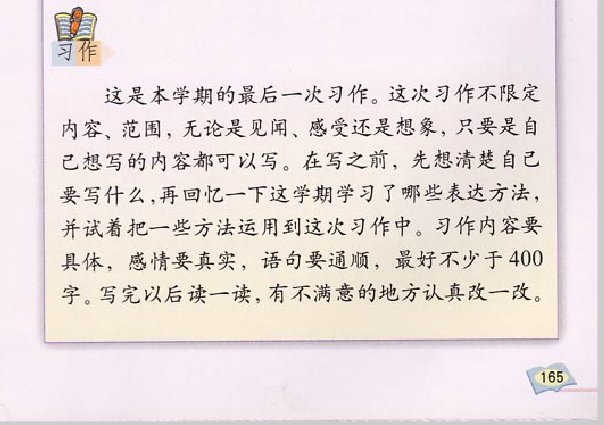 习作
这是本学期的最后一次习作。这次习作不限定
内容、范围，无论是见闻、感受还是想象，只要是自
己想写的内容都可以写。在写之前，先想清楚自己
要写什么，再回忆一下这学期学习了哪些表达方法，
并试着把一些方法运用到这次习作中。习作内容要
具体，感情要真实，语句要通顺，最好不少于400
字。写完以后读一读，有不满意的地方认真改一改。
165